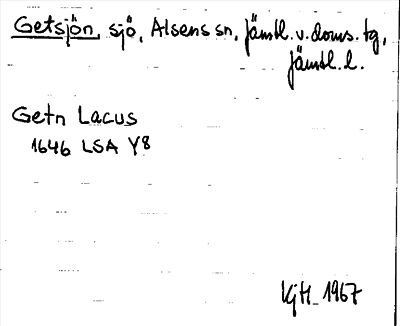 Getsjön, sjö, Alsens sn, Jämtl. v. doms. tg,
Jämtl. l.
Getn Lacus
1646 LSA Y8
KjH_1967